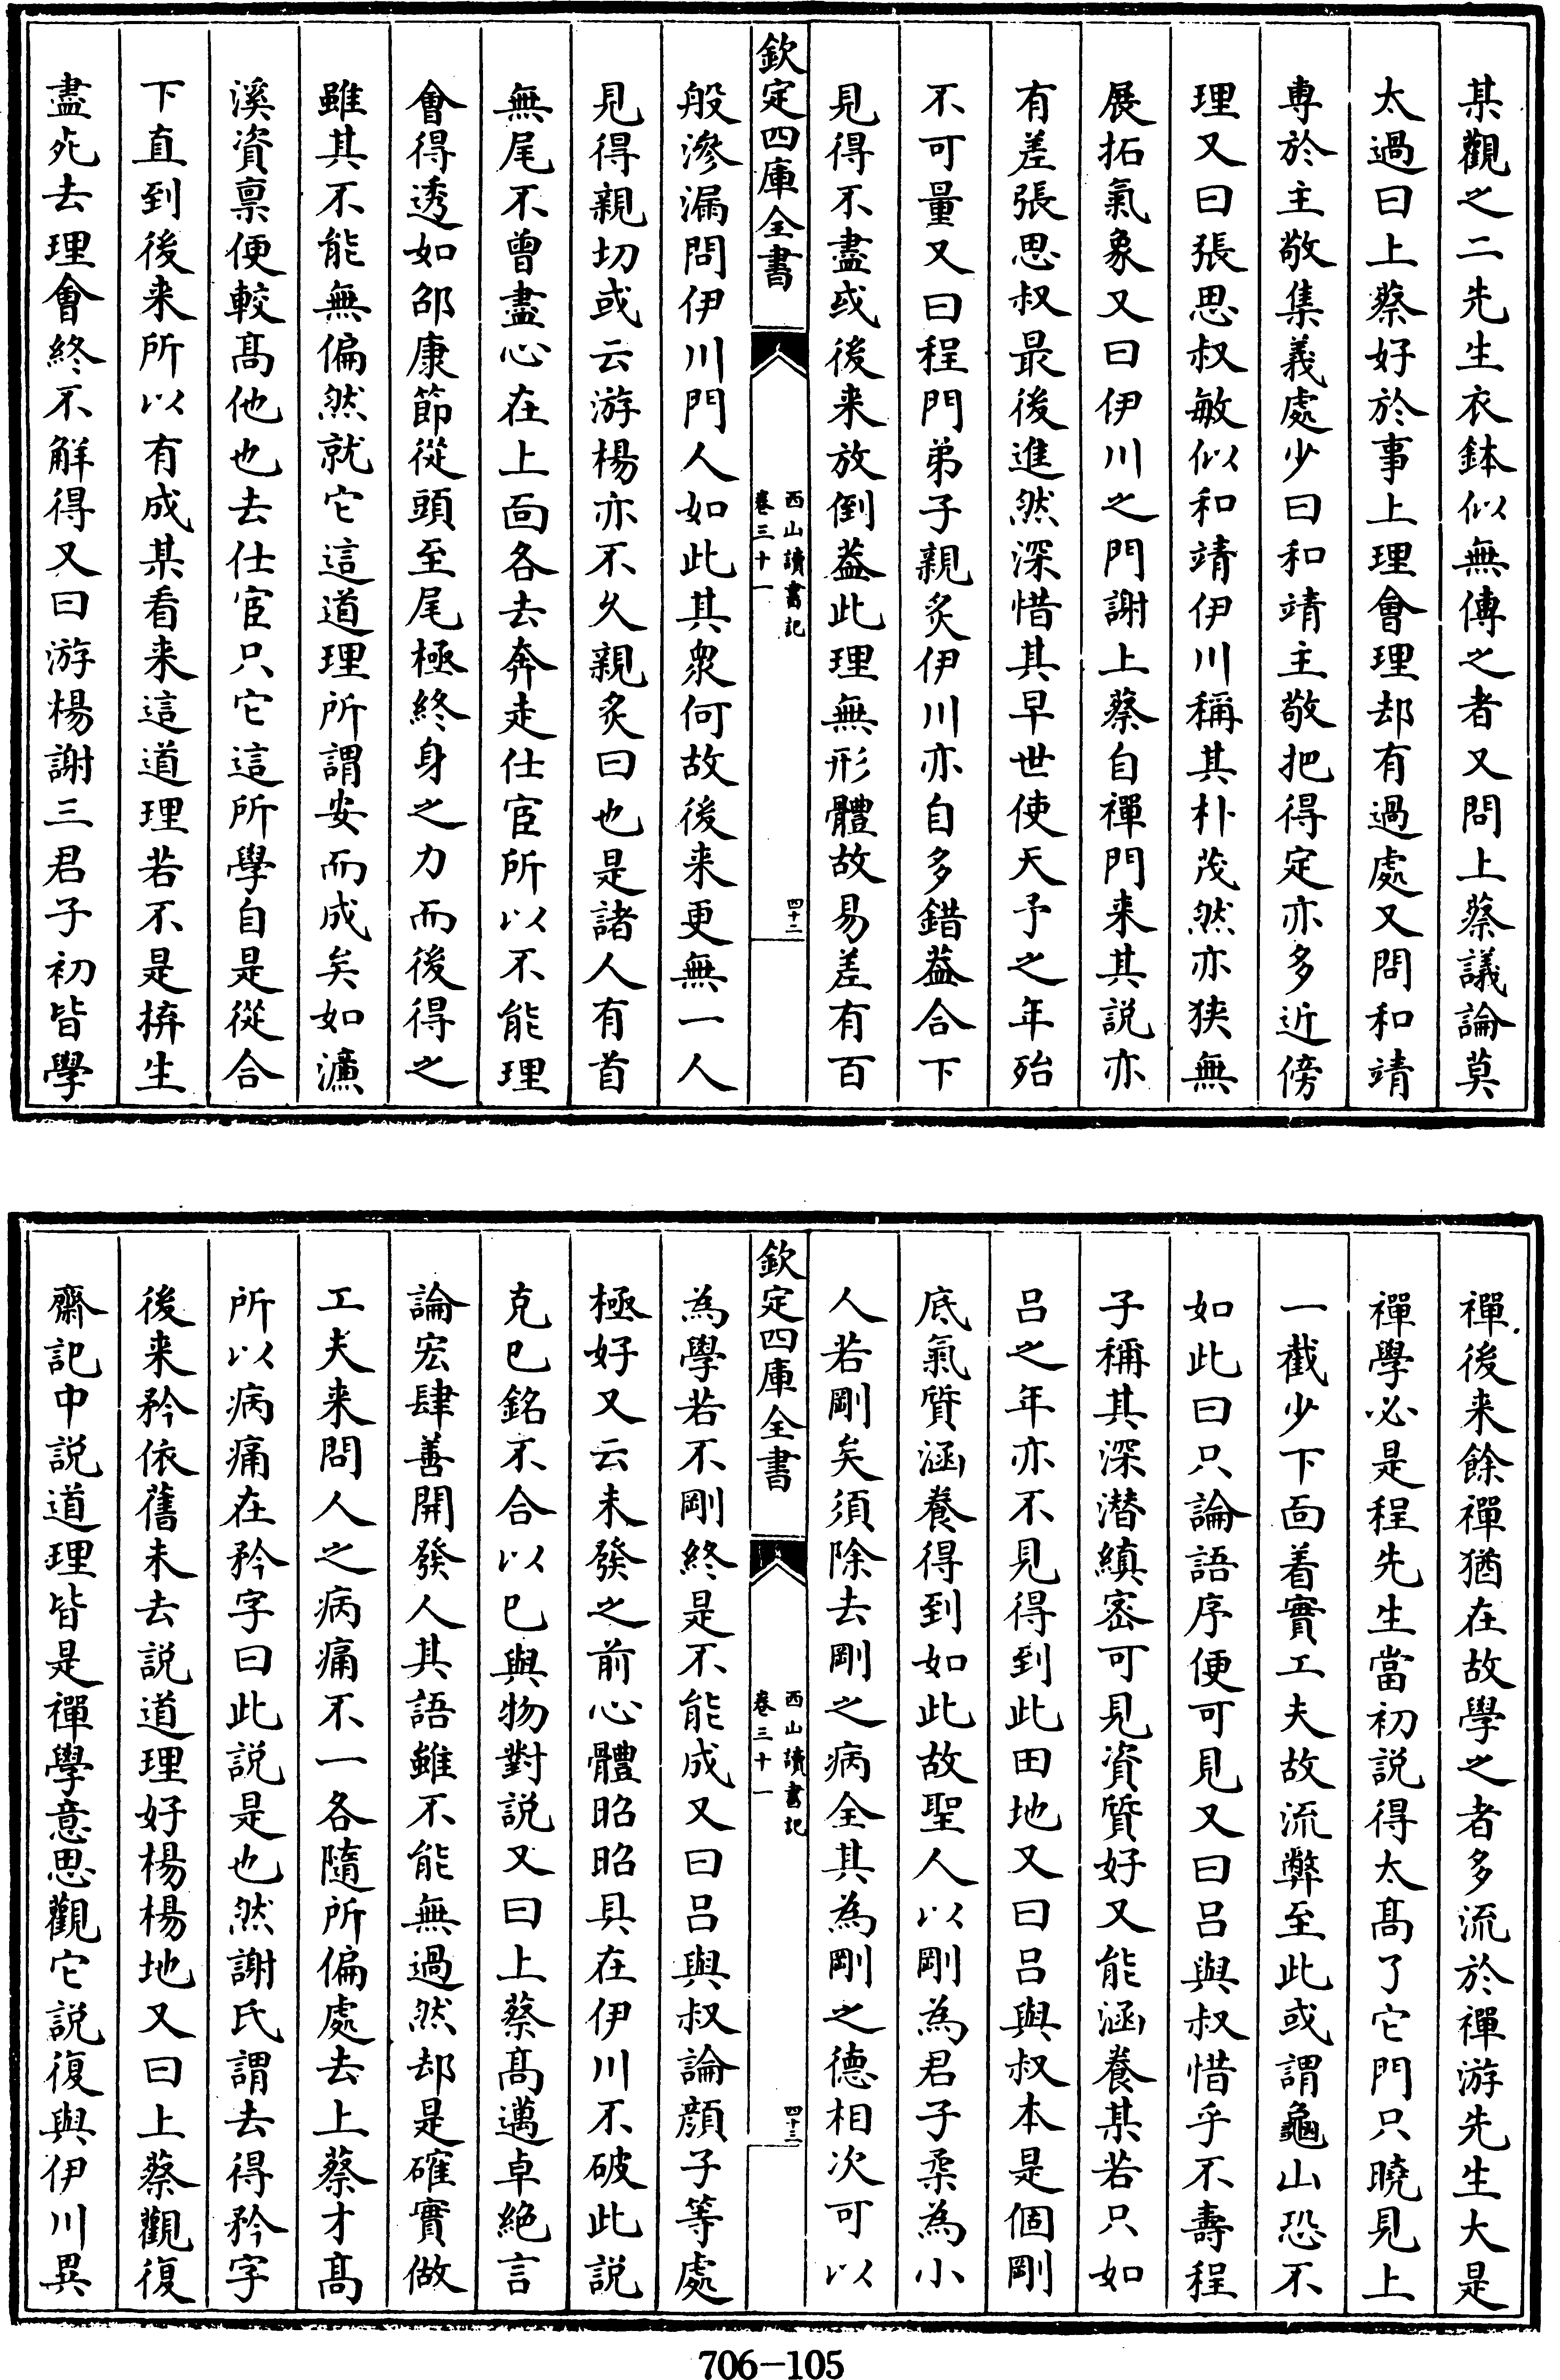 某觀之二先生衣鉢似無傳之者又問上蔡議論莫
太過曰上蔡好於事上理會理却有過處又問和靖
專於主敬集義處少曰和靖主敬把得定亦多近傍
理又曰張思叔敏似和靖伊川稱其朴茂然亦狭無
展拓氣象又曰伊川之門謝上蔡自禪門来其説亦
有差張思叔最後進然深惜其早世使天予之年殆
不可量又曰程門弟子親炙伊川亦自多錯葢合下
見得不盡或後来放倒葢此理無形體故易差有百
欽定四庫全書
西山讀書記
卷三十一
四十二
般滲漏問伊川門人如此其衆何故後来更無一人
見得親切或云游楊亦不乆親炙曰也是諸人有首
無尾不曾盡心在上面各去奔走仕宦所以不能理
會得透如邵康節從頭至尾極終身之力而後得之
雖其不能無偏然就它這道理所謂安而成矣如濂
溪資禀便較髙他也去仕宦只它這所學自是從合
下直到後来所以有成某看来這道理若不是拚生
盡死去理會終不解得又曰游楊謝三君子初皆學
禪後来餘禪猶在故學之者多流於禪游先生大是
禪學必是程先生當初説得太髙了它門只曉見上
一截少下面着實工夫故流弊至此或謂龜山恐不
如此曰只論語序便可見又曰吕與叔惜乎不壽程
子稱其深潜縝宻可見資質好又能涵養某若只如
吕之年亦不見得到此田地又曰吕與叔本是個剛
底氣質涵養得到如此故聖人以剛為君子柔為小
人若剛矣須除去剛之病全其為剛之德相次可以
欽定四庫全書
西山讀書記
卷三十一
四十三
為學若不剛終是不能成又曰吕與叔論顔子等處
極好又云未發之前心體昭昭具在伊川不破此説
克已銘不合以已與物對説又曰上蔡髙邁卓絶言
論宏肆善開發人其語雖不能無過然却是確實做
工夫来問人之病痛不一各隨所偏處去上蔡才髙
所以病痛在矜字曰此説是也然謝氏謂去得矜字
後来矜依舊未去説道理好楊楊地又曰上蔡觀復
齋記中説道理皆是禪學意思觀它説復與伊川異
706-105